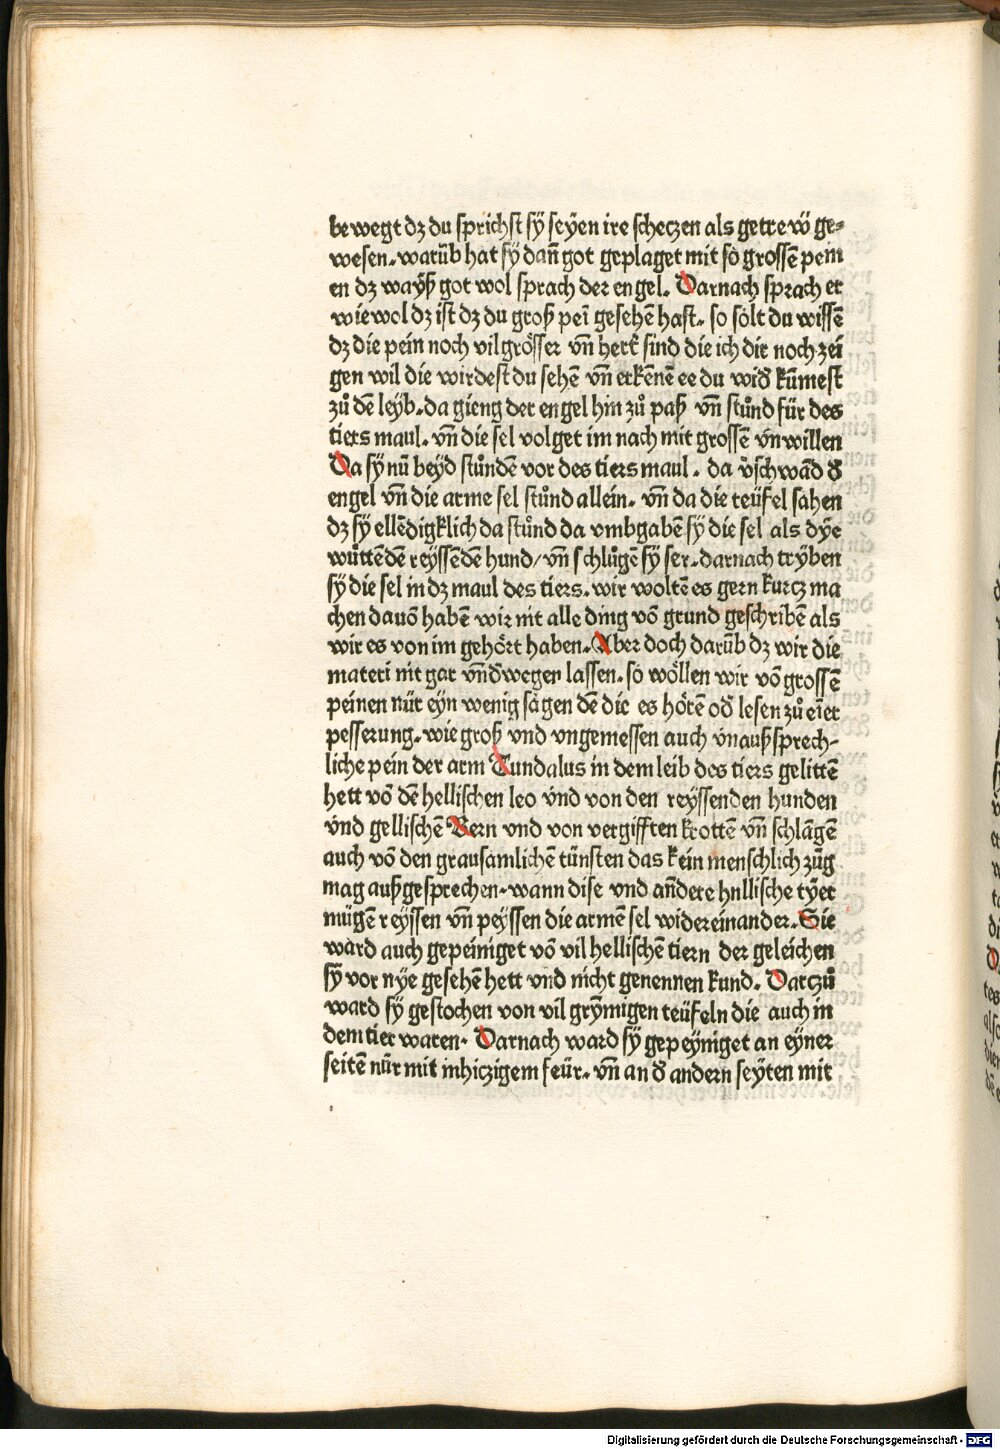 bewegt dz du sprichst sÿ seÿen ire scheczen als getrew̃ ge⸗
wesen. warūb hat sÿ dañ got geplaget mit so grossē pein
en dz wayß got wol sprach der engel. Darnach sprach er
wiewol dz ist dz du groß peī gesehē hast. so solt du wissē
dz die pein noch vil grösser vñ hert sind die ich dir noch zei
gen wil die wirdest du sehē vñ erkēnē ee du wid̕ kūmest
zů dē leÿb. da gieng der engel hin zů paß vñ stůnd für des
tiers maul. vñ die sel volget im nach mit grossē vnwillen
Da sÿ nū beÿd stůndē vor des tiers maul. da v̕schwād d̕
engel vñ die arme sel stůnd allein. vñ da die teüfel sahen
dz sÿ ellēdigklich da stůnd da vmbgabē sÿ die sel als dÿe
wüttēdē reÿssēdē hund/ vñ schlůgē sÿ ser. darnach trÿben
sÿ die sel in dz maul des tiers. wir woltē es gern kurcz ma
chen dauō habē wir nit alle ding vō grund geschribē als
wir es von im gehört haben. Aber doch darūb dz wir die
materi nit gar vnd̕wegen lassen. so wöllen wir vō grossē
peinen nür eyn wenig sagen dē die es hörē od̕ lesen zů eīer
pesserung. wie groß vnd vngemessen auch vnaußsprech-
liche pein der arm Tundalus in dem leib des tiers gelittē
hett vō dē hellischen leo vnd von den reÿssenden hunden
vnd gellischē Bern vnd von vergifften krottē vñ schlāgē
auch vō den grausamlichē tünsten das kein menschlich zūg
mag außgesprechen. wann dise vnd añdere hnllische tÿer
mügē reÿssen vñ peÿssen die armē sel widereinander. Sie
ward auch gepeiniget vō vil hellischē tiern der geleichen
sÿ vor nÿe gesehē hett vnd nicht genennen kund. Darczů
ward sÿ gestochen von vil grÿmigen teüfeln die auch in
dem tier waren. Darnach ward sÿ gepeÿniget an eÿner
seitē nür mit inhiczigem feür. vñ an d̕ andern seÿten mit
Digitalisierung gefördert durch die Deutsche Forschungsgemeinschaft - DFG